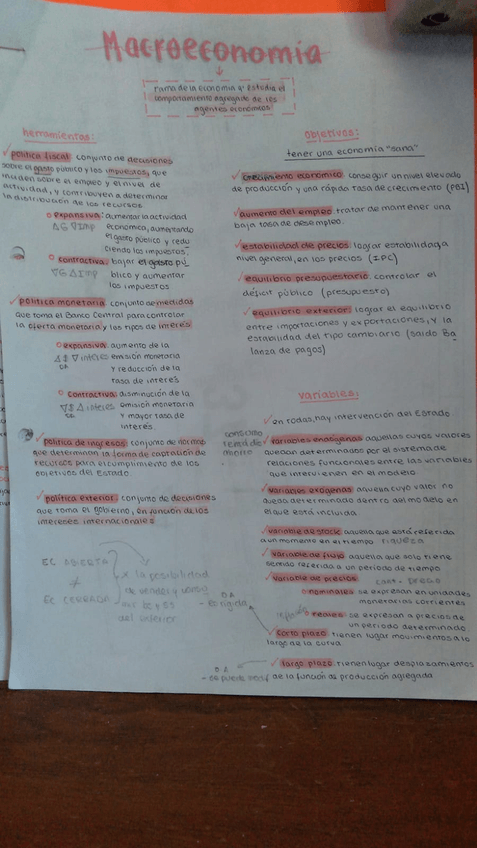 Macroeconomía
rama de la economía q' estudia el
comportamiento agregado de los
agentes económicos
herramientas:
política fiscal conjunto de decisiones
sobre el gasto público y los impuestos, que
inciden sobre el empleo y el nivel de
actividad, y contribuyen a determinar
la distribución de los recursos
expansiva: aumentar la actividad
económica, aumentando
el gasto público y redu
ciendo los impuestos.
ΔG ∇Imp
contractiva: bajar el gasto pú
blico y aumentar
los impuestos
∇G ΔImp
política monetaria conjunto de medidas
que toma el Banco Central para controlar
la oferta monetaria y los tipos de interés
expansiva: aumento de la
emisión monetaria
y reducción de la
tasa de interés
Δ$ ∇interés
contractiva: disminución de la
emisión monetaria
y mayor tasa de
interés.
∇$ Δinterés
política de ingresos: conjunto de normas
que determinan la forma de captación de
recursos para el cumplimiento de los
objetivos del Estado
política exterior: conjunto de decisiones
que toma el gobierno, en función de los
intereses internacionales
EC ABIERTA
≠
EC CERRADA
x la posibilidad
de vender y
bs y ss
del exterior
objetivos:
tener una economía "sana"
crecimiento económico conseguir un nivel elevado
de producción y una rápida tasa de crecimiento (PBI)
aumento del empleo tratar de mantener una
baja tasa de desempleo.
estabilidad de precios lograr estabilidad, a
nivel general, en los precios (IPC)
equilibrio presupuestario controlar el
déficit público (presupuesto)
equilibrio exterior: lograr el equilibrio
entre importaciones y exportaciones, y la
estabilidad del tipo cambiario (saldo Ba
lanza de pagos)
variables:
en todas, hay intervención del Estado
variables endógenas aquellas cuyos valores
quedan determinados por el sistema de
relaciones funcionales entre las variables
que intervienen en el modelo
consumo
ahorro
variables exógenas aquella cuyo valor no
queda determinado dentro del modelo en
el que está incluida
variable de stock aquella que está referida
a un momento en el tiempo riqueza
variable de flujo aquella que solo tiene
sentido referida a un período de tiempo
variable de precios
nominales se expresan en unidades
monetarias corrientes
reales se expresan a precios de
un período determinado
corto plazo tienen lugar movimientos a lo
largo de la curva.
OA
- es rígida
largo plazo tienen lugar desplazamientos
de la función de producción agregada
OA
- se puede